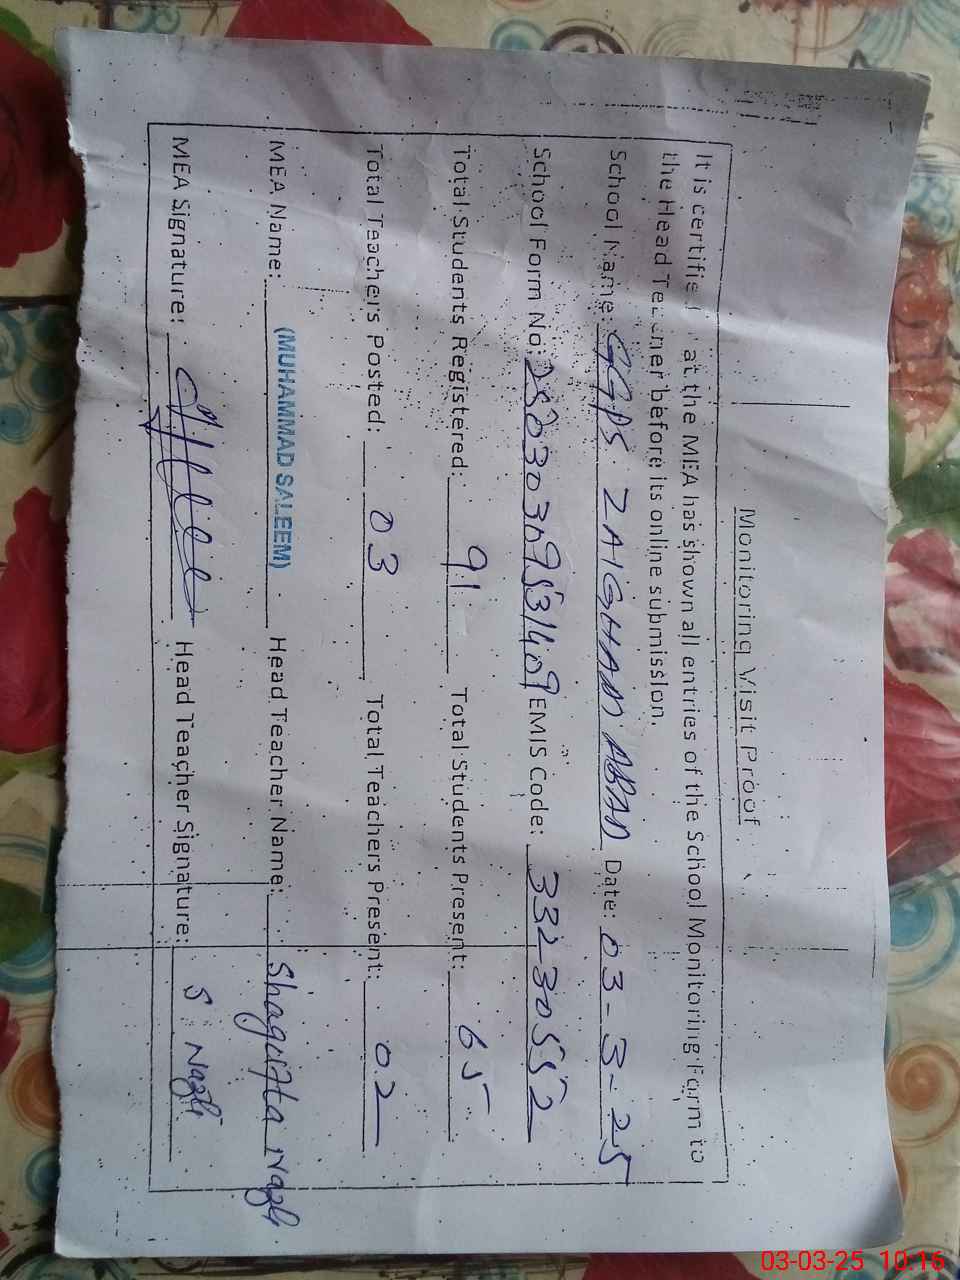 Monitoring Visit Proof
It is certified at the MEA has shown all entries of the School Monitoring Form to
the Head Teacher before its online submission.
School Name: GGPS ZAIGHAM ABAD Date: 03-3-25
School Form No: EMIS Code: 33230552
Total Students Registered: 91 Total Students Present: 65
Total Teachers Posted: 03 Total Teachers Present: 02
MEA Name: (MUHAMMAD SALEEM) Head Teacher Name: Shagufta Nazli
MEA Signature: Head Teacher Signature: S Nazli
03-03-25 10:16